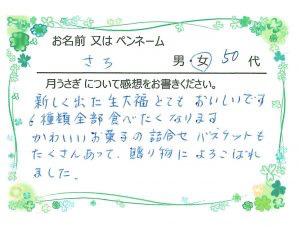 お名前 又は ペンネーム
さち 男・女 50代
月うさぎ について感想をお書きください。
新しく出た生大福とても おいしいです
6種類全部食べたくなります
かわいいお菓子の詰合せ バスケットも
たくさんあって、贈り物に よろこばれ
ました。